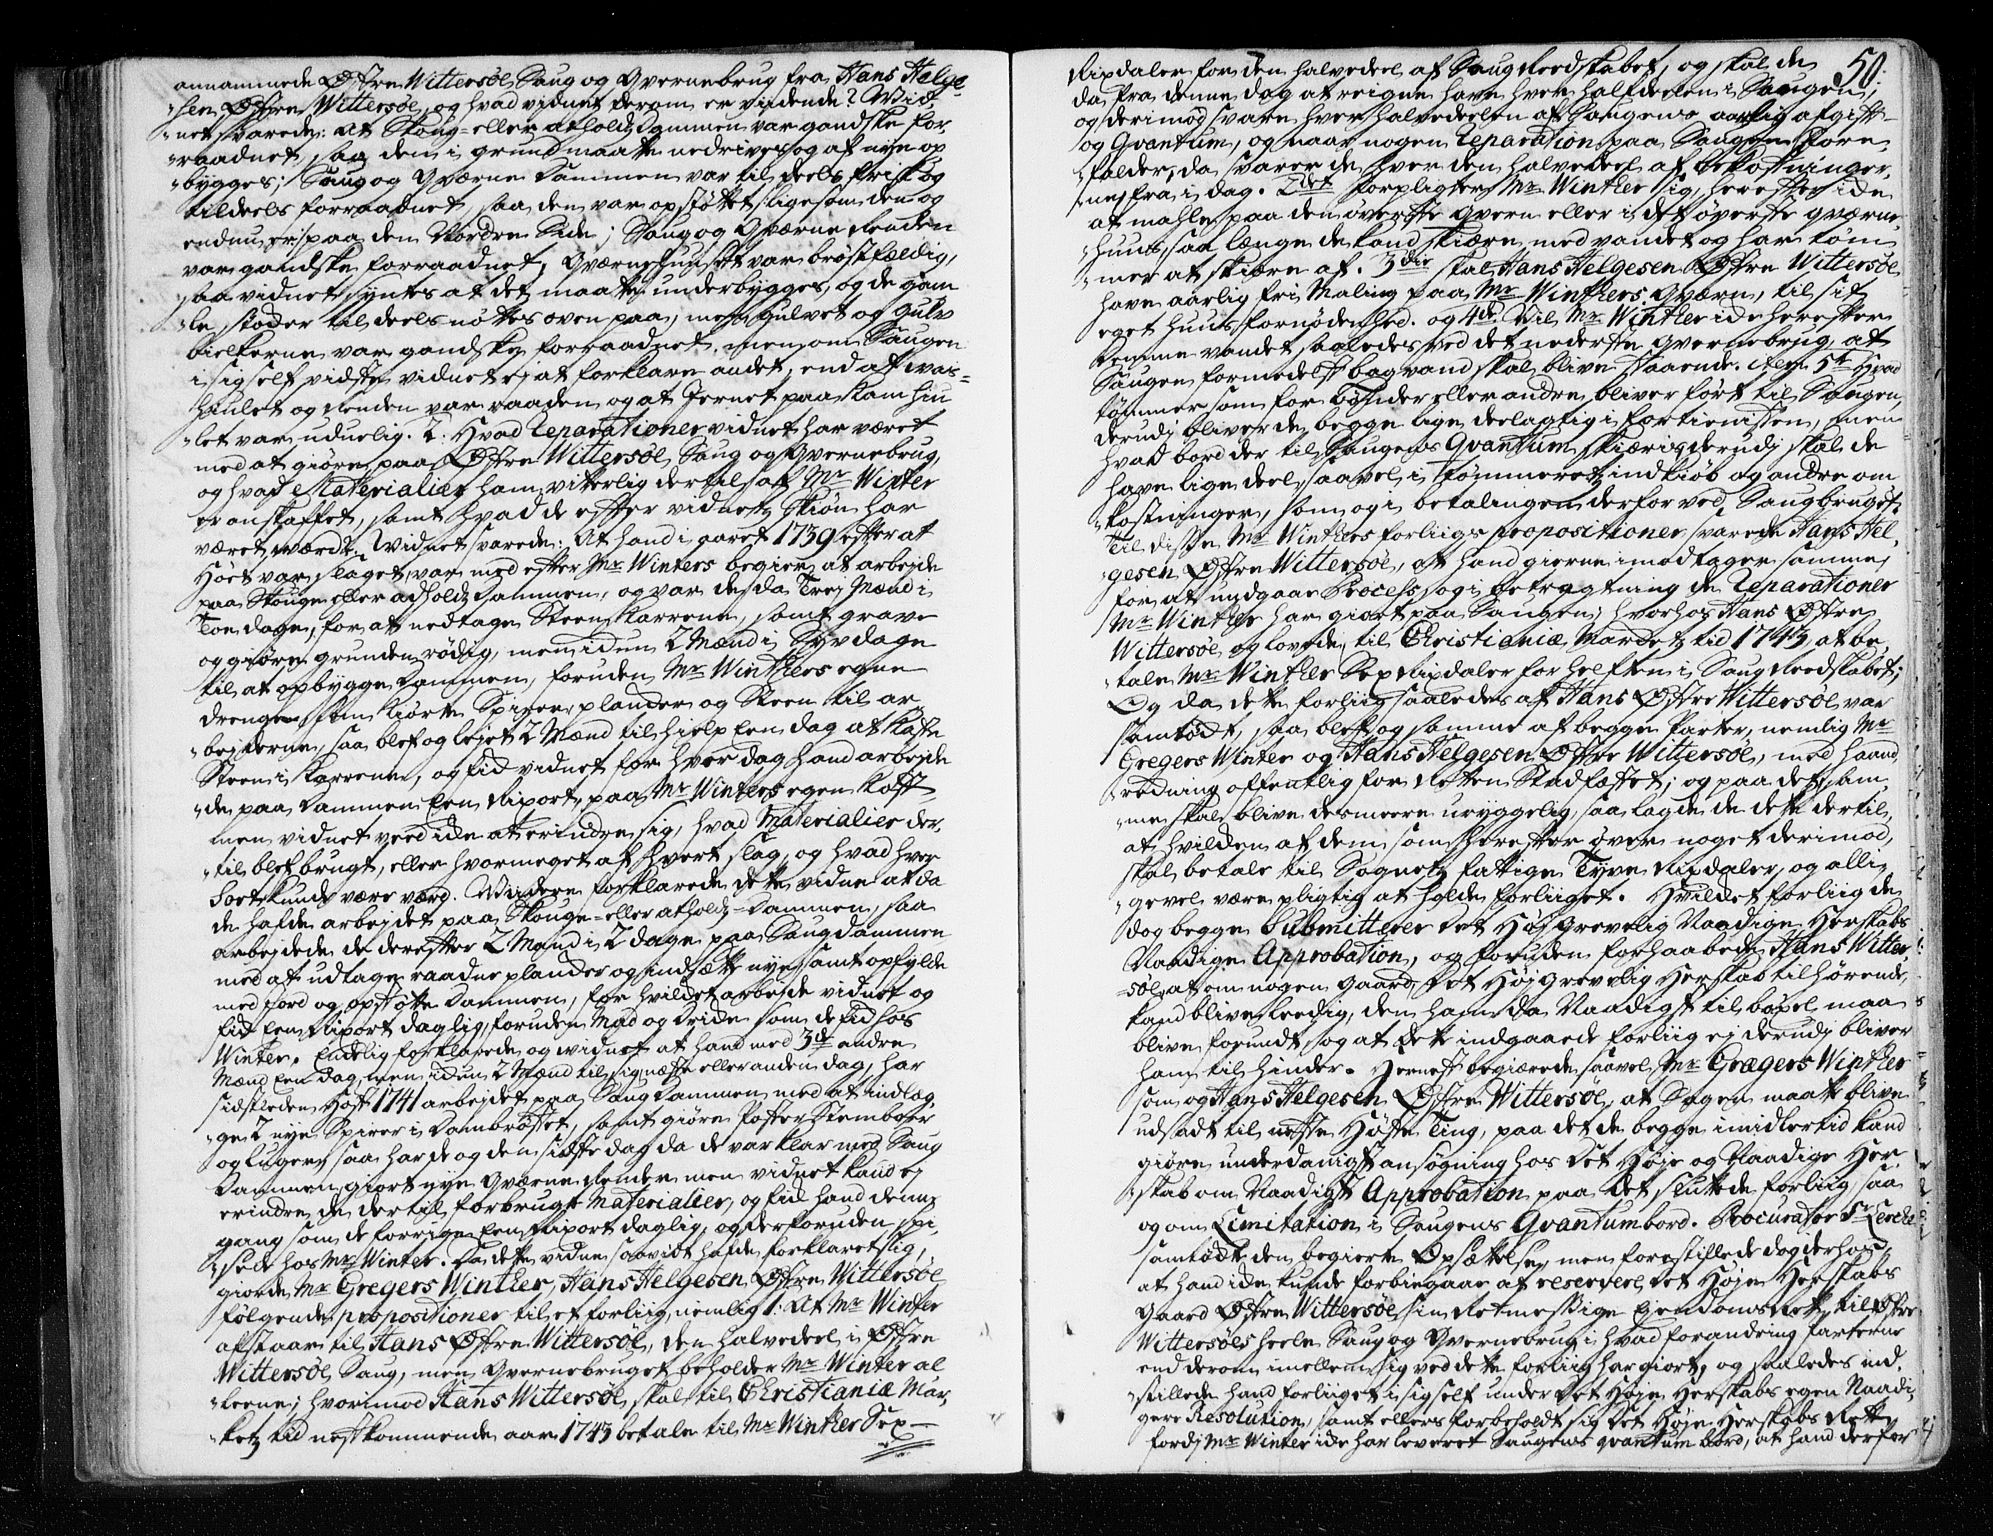 annammede Østre Wittersøe Saug og Qvernebrug fra Hans Helge-
-sen Østre Wittersøe, og hvad vidnet derom er vidende? Wid-
-net svarede: At Skoug- eller atholds Dammen var gandske for-
-raadnet, saa den i grund maatte nedrives og af nye op
-bygges; Saug og Qværne Dammen var til deels frisk og
tildeels forraadnet, saa den var opstøttet ligesom den og
endnu er paa den Nordre Side; Saug og Qværne Renden
var gandske forraadnet, Qværnehuuset var brøstfældig,
saa vidnet syntes at det maatte underbygges, og de gam
-le stoder til deels nøttes oven paa, men Gulvet og Gulv
bielkerne var gandske forraadnet, men om Saugen
i sig self vidste vidnet ej at forklare andet, end at was-
-hiulet og Renden var raaden og at Jernet paa Kamhiu
-let var uduelig. 2: Hvad Reparationer vidnet har været
med at giøre paa Østre Wittersøe Saug og Qvernebrug,
og hvad Materialier ham viterlig dertil af Mr Winter
er anskaffet, samt hvad de efter vidnets Skiøn har
været værdt? Widnet svarede: At hand i aaret 1739 efter at
Høet var slaget, var med efter Mr Winters begier at arbejde
paa Skouge eller adholds Dammen, og var de da Trej Mænd i
Toe dage, for at nedtage Steen Karrene, samt grave
og giøre grunden rødig, men siden 2 Mænd i Syv dage
til at opbygge Dammen, foruden Mr Winthers egne
drenge som kiørte Spirer, plander og Steen til ar-
-bejderne, saa blef og lejet 2 Mænd til hielp Een dag at Kaste
Steen i Karrene, og fik vidnet for hver dag hand arbejde
-de paa Dammen Een Rixort, paa Mr Winters egen Kost,
men vidnet veed ike at erindre sig, hvad Materialier der-
-til blef brugt, eller hvormeget af hvert slag, og hvad hver
Sort kunde være værd. Widere forklarede dette vidne at da
de hafde arbejdet paa Skouge- eller atholds-Dammen, saa
arbejdede de derefter 2 Mænd i 2 dage paa Saugdammen
med at udtage raadne plander og indsætte nye, samt opfylde
med jord og opstøtte Dammen, for hvilket arbejde vidnet og
fik Een Rixort daglig, foruden Mad og Drike som de fik hos
Winter. Endelig forklarede og vidnet at hand med 3de andre
Mænd Een dag, men siden 2 Mænd til sig næste eller anden dag, har
sidstleden Høst 1741 arbejdet paa Saug Dammen med at indlæg-
-ge 2 nye Spirer i Dambrøstet, samt giøre Poster Stemboser
og Luger, saa har de og den sidste dag da de var klar med Saug
Dammen giort nye Qværne Render, men vidnet kand ej
erindre de dertil forbrugte Materialier, og fik hand denne
gang som de forrige Een Rixort daglig, og derforuden spi-
-sede hos Mr Winter. Da dette vidne saavidt hafde forklaret sig,
giorde Mr Gregers Winther, Hans Helgesen Østre Wittersøe
følgende propositioner til et forliig, nemlig 1: At Mr Winter
afstaar til Hans Østre Wittersøe, den halvedeel i Østre
Wittersøe Saug, men Qvernebruget beholder Mr Winter al
-leene; hvorimod Hans Wittersøe skal til Christianiæ Mar-
-kets tid nestkommende aar 1743 betale til Mr Winther Sex
50.
Rixdaler for den halvedeel af Saug Reedskabet, og skal de
da fra denne dag at reigne have hver halfdeelen i Saugen;
og derimod svare hver halvedeelen af Saugens aarlig afgift
og Qvantum, og naar nogen Reparation paa Saugen fore
-falder, da svarer de hver den halvedeel af bekostninger-
-ne, fra i dag. 2det forpligter Mr Winther sig, herefter ike
at mahle paa den øverste Qvern eller i det øverste qværne
-huus, saa længe de kand skiære med vandet og har tøm
-mer at skiære af. 3die skal Hans Helgesen Østre Wittersøe
have aarlig fri Maling paa Mr Winthers Qværn, til sit
eget huus fornødenhed. og 4de Vil Mr Winther ike herefter
demme vandet saaledes ved det nederste Qvernebrug, at
Saugen formedelst bagvand skal blive staaende. Men 5te Hvad
tømmer som for Bønder eller andre bliver ført til Saugen,
derudj bliver de begge lige deelagtig i fortienisten, men
hvad bord der til Saugens Qvantum skiæris, derudj skal de
have lige deel, saavel i tømmerets indkiøb og andre om-
-kostninger, som og i betalingen derfor ved Saugbruget.
Til disse Mr Winthers forliigs propositioner svarede Hans Hel-
-gesen Østre Wittersøe, at hand gierne imodtager samme,
for at undgaae Process, og i betragtning de Reparationer
Mr Winther har giort paa Saugen; hvorhos Hans Østre
Wittersøe og lovede til Christianiæ Markets tid 1743, at be-
-tale Mr Winther Sex Rixdaler for helften i Saug Reedskabet;
Og da dette forliig saaledes af Hans Østre Wittersøe var
samtødt, saa blef og samme af begge Parter, nemlig Mr
Gregers Winter og Hans Helgesen Østre Wittersøe, med haand-
-redning offentlig for Retten Stadfæstet; og paa det sam-
-me skal blive desmeere uryggelig, saa lagde de dette dertil,
at hvilken af dem som herefter øver noget derimod,
skal betale til Sognets fattige Tyve Rixdaler, og alli-
-gevel være pligtig at holde forliiget. Hvilket forliig de
dog begge submitterer det Høj Grevelig Naadige Herskabs
Naadige Approbation, og foruden forhaabede Hans Witter-
-søe, at om nogen Gaard, det Høj Grevelig Herskab tilhørende,
kand blive Leedig, den ham da Naadigst til bøxel maa
blive forundt, og at dette indgaaede forliig ej derudj bliver
ham til hinder. Hernest begiærede saavel Mr Gregers Winther
som og Hans Helgesen Østre Wittersøe, at Sagen maatte blive
udsadt til neste Høste Ting, paa det de begge imidlertid kand
giøre underdanigst ansøgning hos det Høje og Naadige Her-
-skab om Naadigst Approbation paa det sluttede forliig, saa
og om Limitation i Saugens Qvantumbord. Procurator Sr Lerche
samtødte den begierte Opsættelse, men forestillede dog derhos,
at hand ike kunde forbiegaae at reservere det Høje Herskabs
Gaard Østre Wittersøe sin Retmessige Ejendoms Rett, til Østre
Wittersøes heele Saug og Qvernebrug, i hvad forandring parterne
end derom imellem sig ved dette forliig har giort, og saaledes ind-
-stillede hand forliiget i sig self under det Høje Herskabs egen Naadi-
gere Resolution, samt ellers forbeholdt sig det Høje Herskabs Rett,
fordj Mr Winter ike har leveret Saugens qvantum bord, at hand derfor